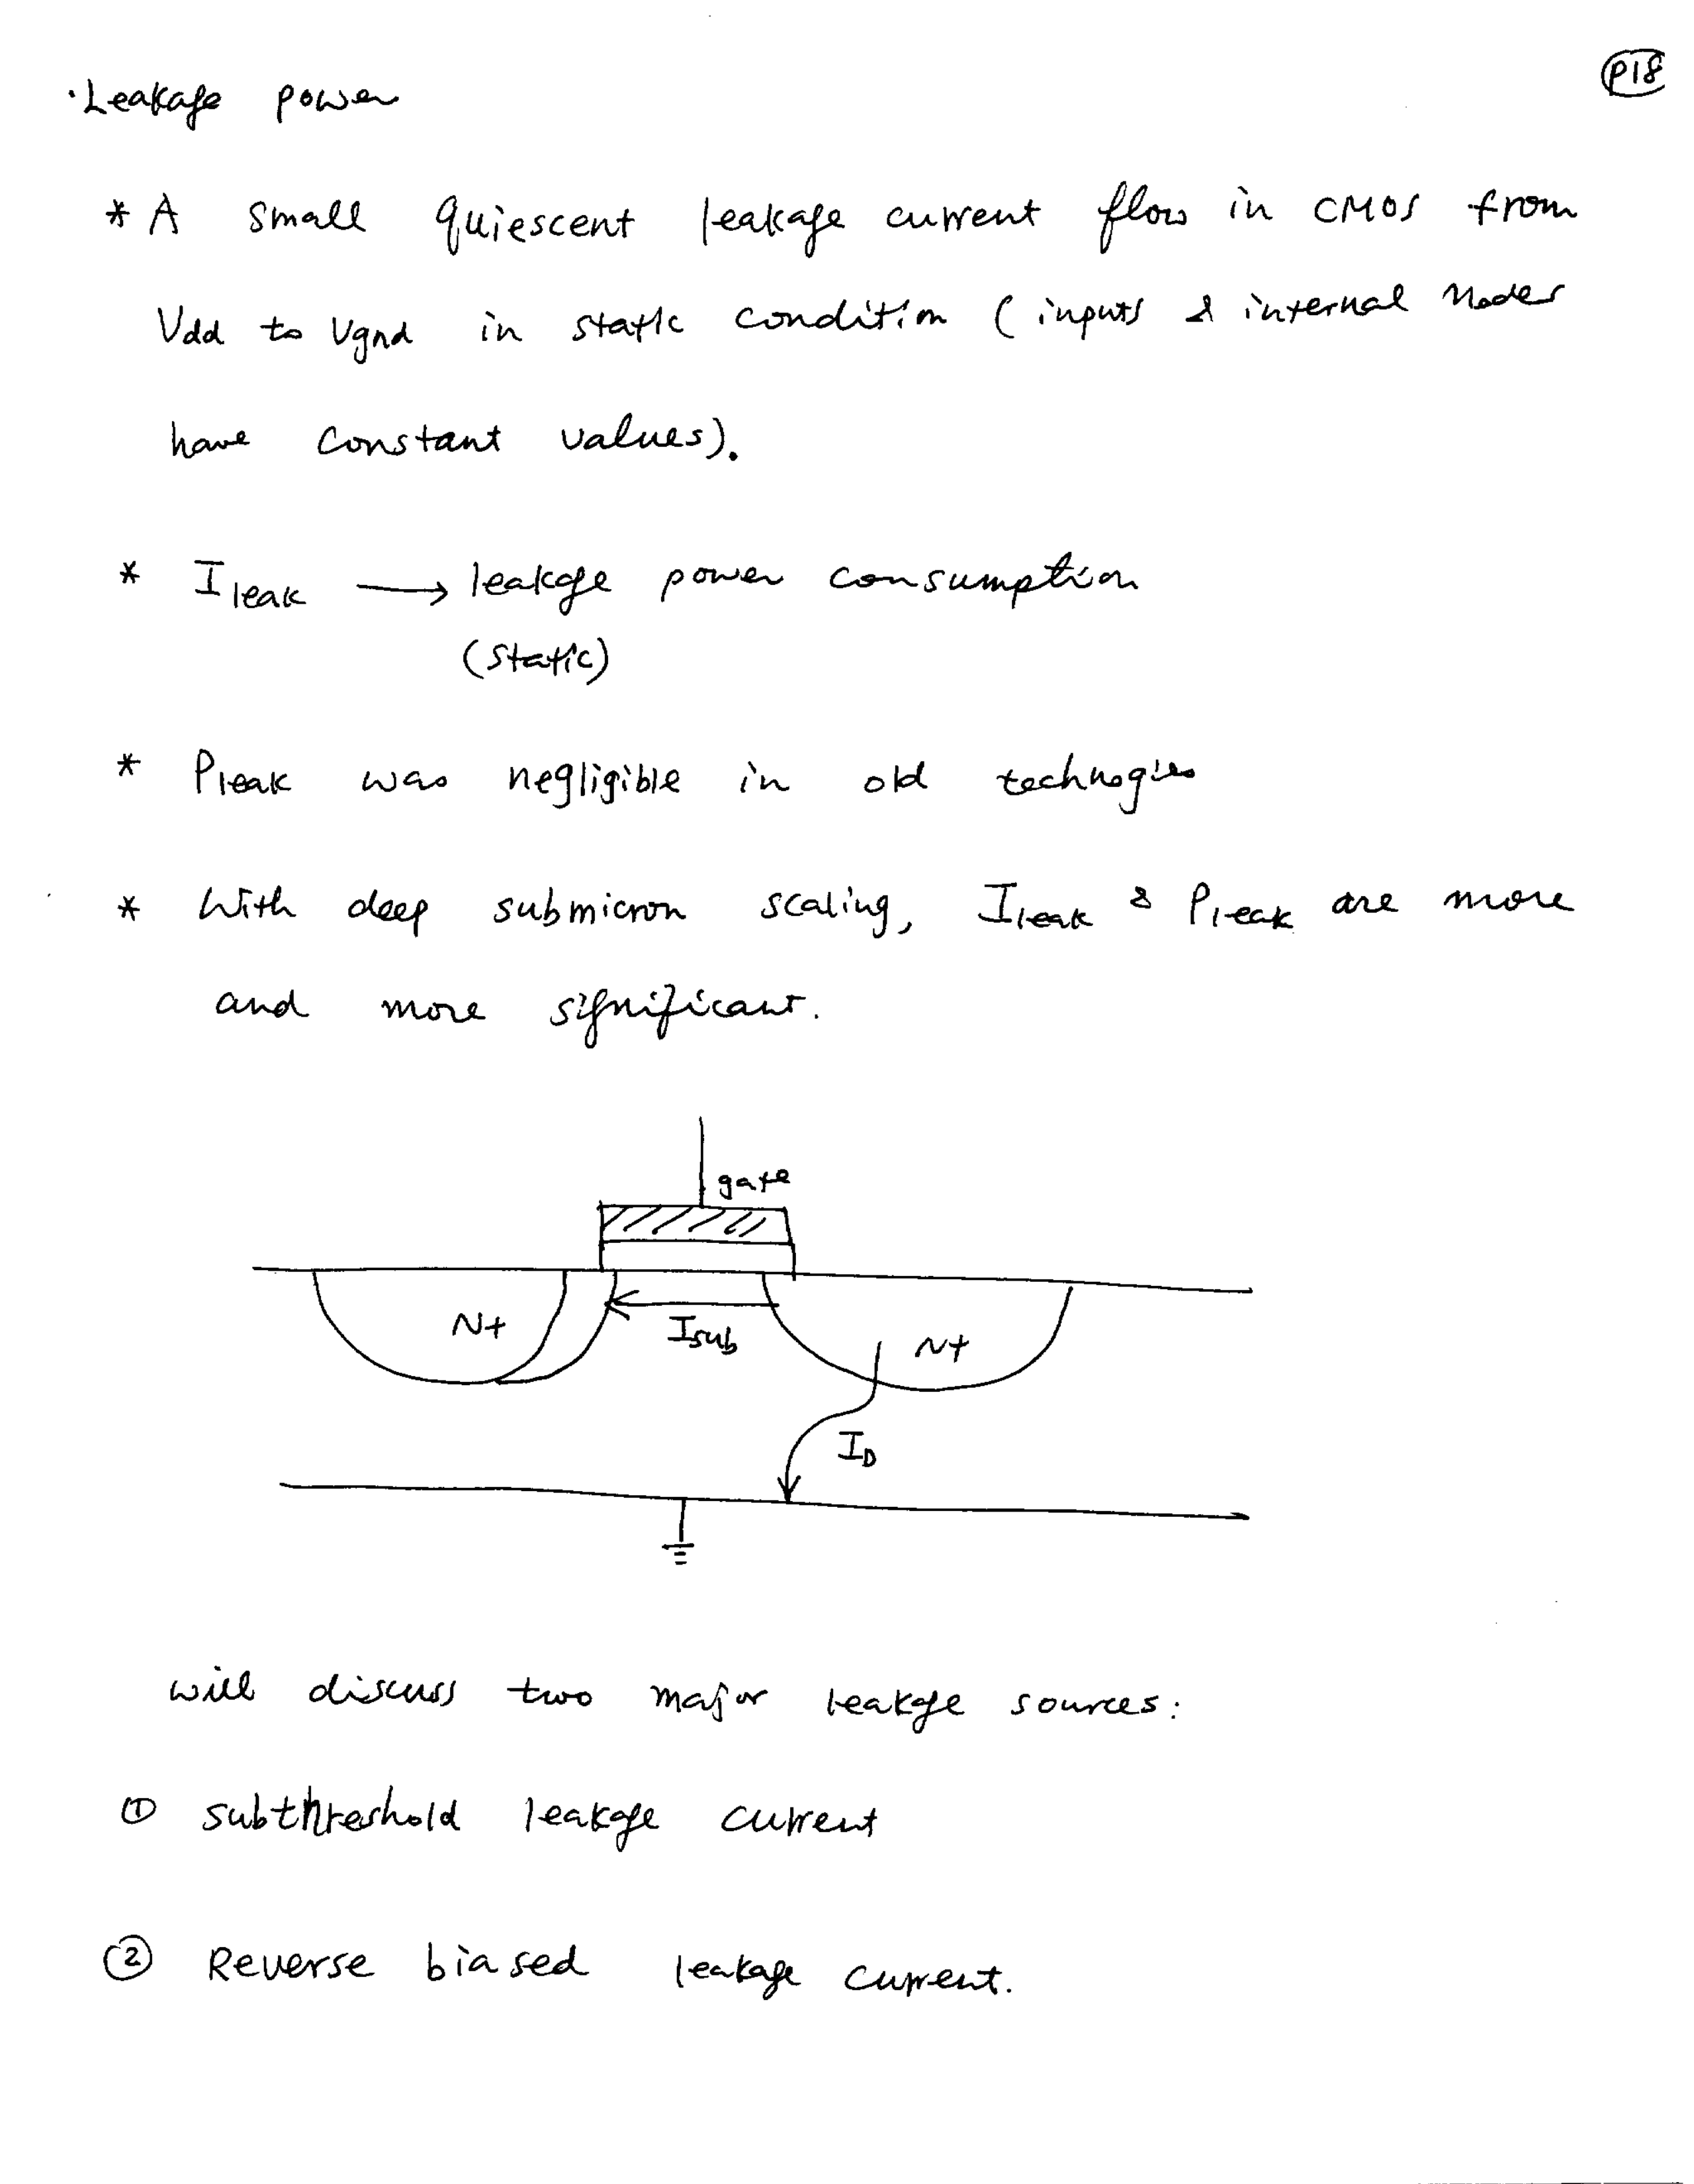 P18
·Leakage power
* A small quiescent leakage current flow in CMOS from
Vdd to Vgnd in static condition ( inputs & internal nodes
have constant values).
* Ileak → leakage power consumption
(static)
* Pleak was negligible in old technogies
* With deep submicron scaling, Ileak & Pleak are more
and more significant.
gate
N+ Isub N+
ID
will discuss two major leakage sources:
① subthreshold leakage current
② Reverse biased leakage current.